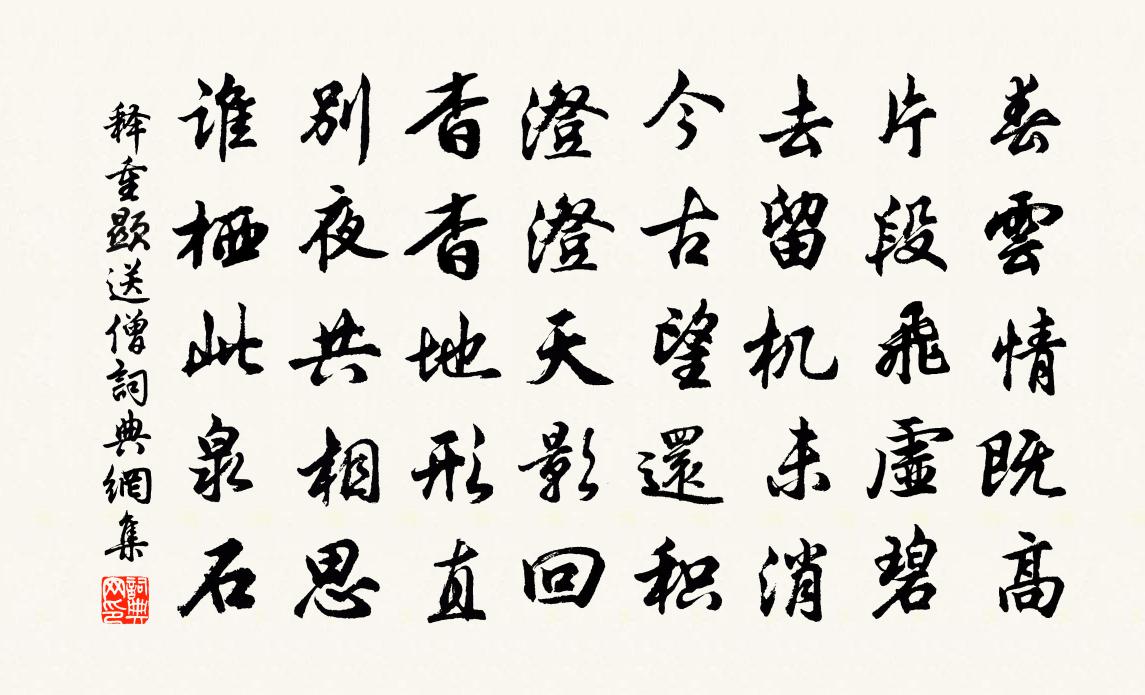 春雲情既高
片段飛虛碧
去留机未消
今古望還积
澄澄天影回
杳杳地形直
别夜共相思
谁栖此泉石
释重顯送僧詞典網集
詞典网印